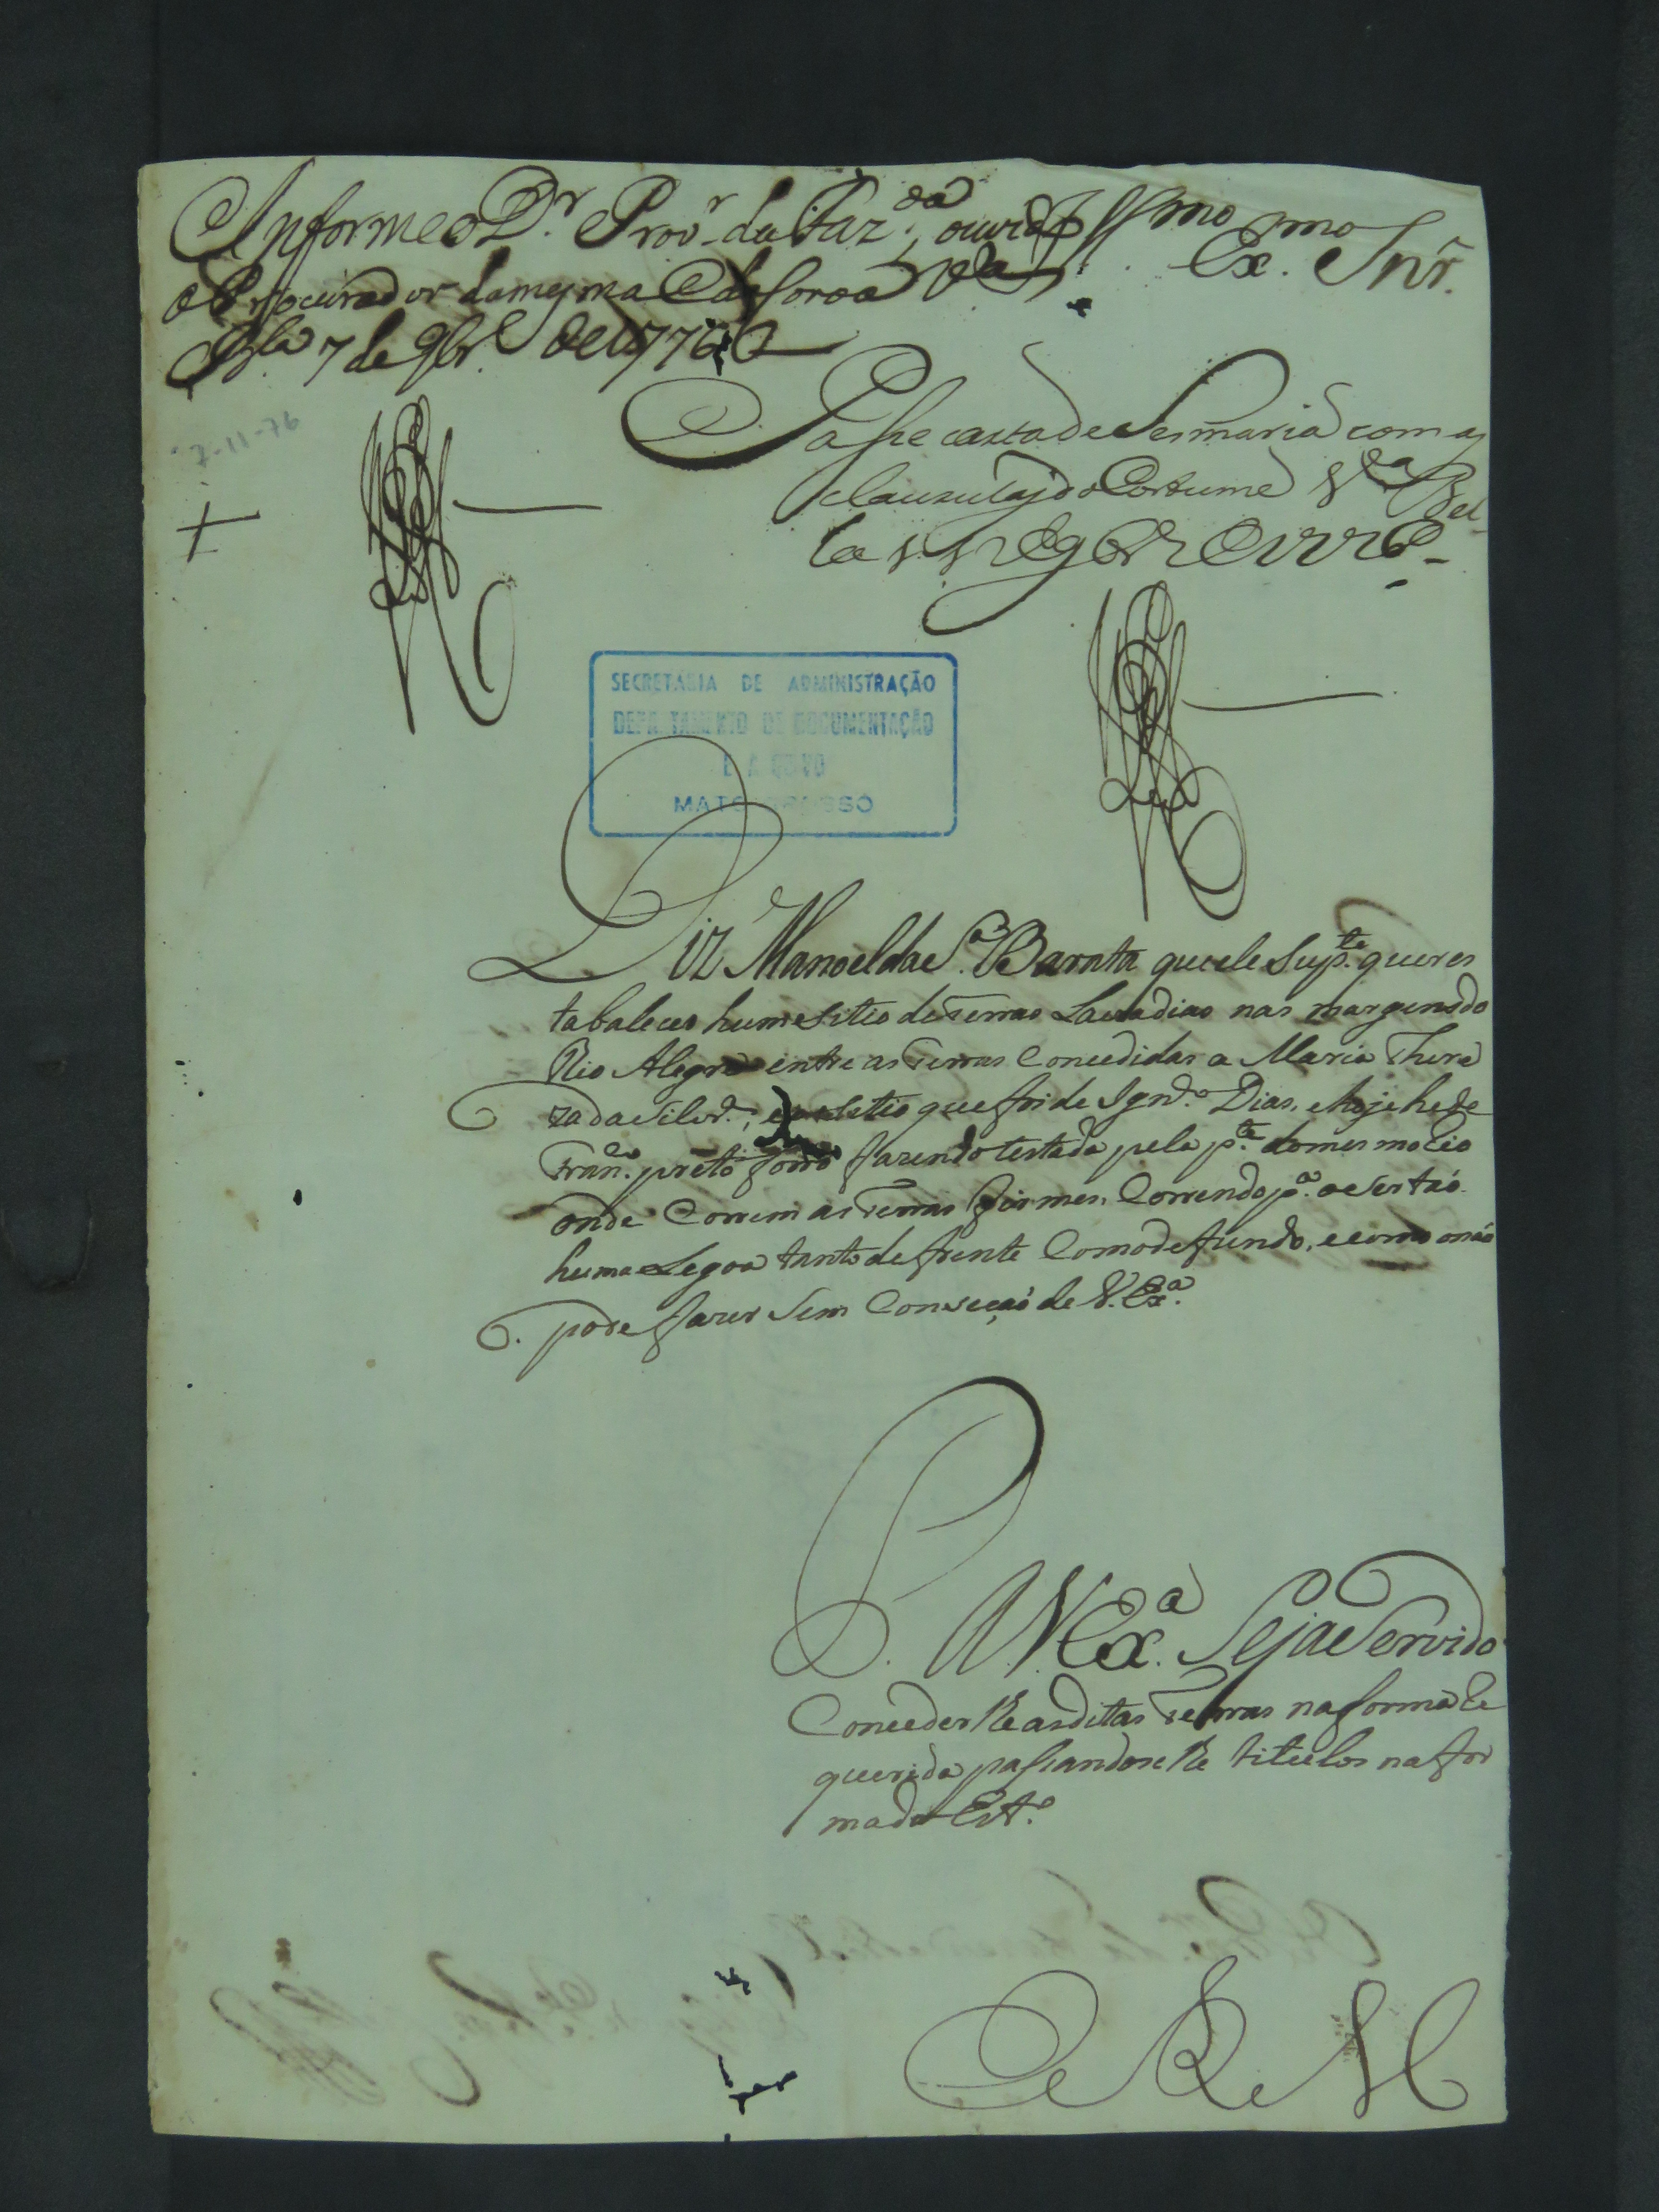 Informe o D.r Prov.r da Faz.da, ouvido
o Procurador da mesma e da Coroa V.a
B.la 7 de 9br.o de 1776
Ill.mo Ex.mo Snr.
7-11-76
Passe carta de Sesmaria com as
clauzulas do Costume V.a Bel-
la
SECRETARIA DE ADMINISTRAÇÃO
DEPARTAMENTO DE DOCUMENTAÇÃO
E ARQUIVO
MATO GROSSO
Diz Manoel da S.a Barata que ele Sup.te quer es
tabalecer hum Sitio de terras Lavradias nas margens do
Rio Alegre entre as terras Concedidas a Maria There
za da Silv.a, e o Sitio que foi de Ign.o Dias, e hoje he de
Fran.co preto forro fazendo testada pela p.te do mesmo Rio
onde Correm as terras firmes, Correndo p.a o Sertaó
huma Legoa tanto de frente Como de fundo, e como o naó
pode fazer Sem Conseçaó de V. Ex.a
P. a V. Ex.a Seja Servido
Conceder lhe as ditas terras na forma Re
querida passandose lhe titulos na for
ma do Est.o
E R M